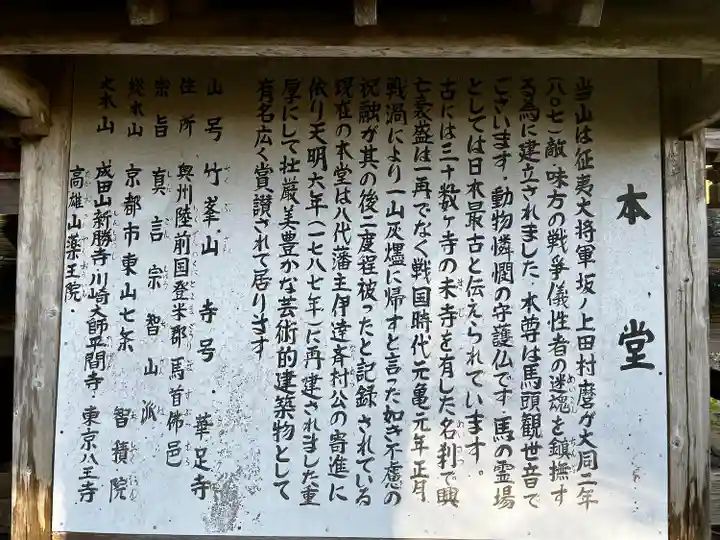 本堂
当山は征夷大将軍坂ノ上田村麿が大同二年
(八〇七)敵、味方の戦争儀性者の迷魂を鎮撫す
る為に建立されました、本尊は馬頭観世音で
ございます、動物憐憫の守護仏です、馬の霊場
としては日本最古と伝えられています。
古には三十数ヶ寺の末寺を有した名刹で興
亡衰盛は一再でなく戦国時代元亀元年正月
戦渦により一山灰燼に帰すと言った如き不慮の
祝融が其の後二度程被ったと記録されている
現在の本堂は八代潘主伊達斉村公の寄進に
依り天明六年(一七八七年)に再建されました重
厚にして壮厳美豊かな芸術的建築物として
有名広く賞讃されて居ります
山号 竹峯山 寺号 華足寺
住所 奥州陸前国登米郡馬首佛邑
宗旨 真言宗智山派
総本山 京都市東山七条 智積院
大本山 成田山新勝寺・川崎大師平間寺・東京八王寺
高雄山薬王院・